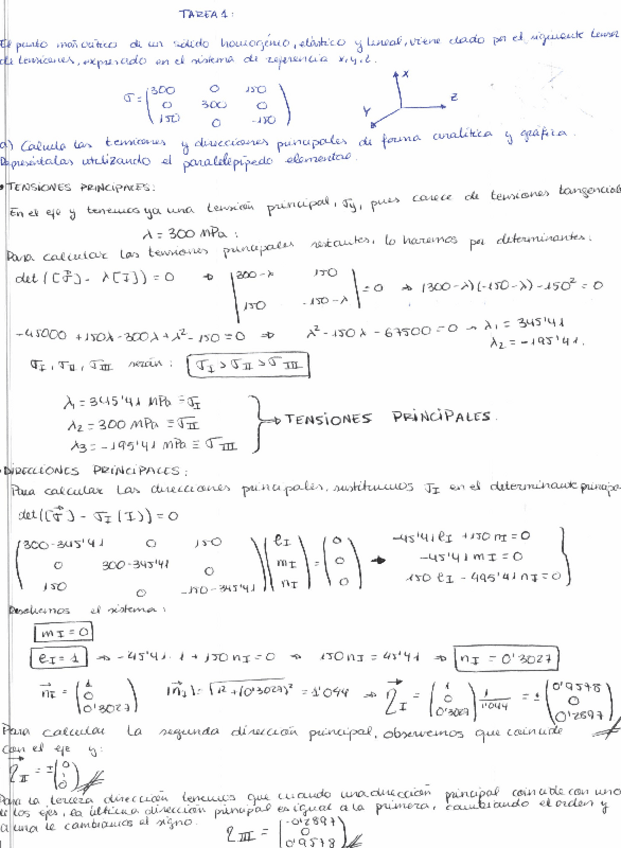 TAREA 1:
El punto más crítico de un sólido homogéneo, elástico y lineal, viene dado por el siguiente tensor
de tensiones, expresado en el sistema de referencia x, y, z.
σ = (300 0 150
0 300 0
150 0 -150)
X
Y
Z
a) Calcula las tensiones y direcciones principales de forma analítica y gráfica.
Represéntalas utilizando el paralelepípedo elemental.
• TENSIONES PRINCIPALES:
En el eje y tenemos ya una tensión principal, σy, pues carece de tensiones tangenciales
λ = 300 MPa:
Para calcular las tensiones principales restantes, lo haremos por determinantes:
det([σ] - λ[I]) = 0 ⇒ |300-λ 150
150 -150-λ| = 0 ⇒ (300-λ)(-150-λ) - 150² = 0
-45000 + 150λ - 300λ + λ² - 150 = 0 ⇒ λ² - 150λ - 67500 = 0 → λ₁ = 345'41
λ₂ = -195'41.
σI, σII, σIII serán: σI > σII > σIII
λ₁ = 345'41 MPa ≡ σI
λ₂ = 300 MPa ≡ σII
λ₃ = -195'41 MPa ≡ σIII
⇒ TENSIONES PRINCIPALES.
• DIRECCIONES PRINCIPALES:
Para calcular las direcciones principales, sustituimos σI en el determinante principal
det([σ] - σI(I)) = 0
(300-345'41 0 150
0 300-345'41 0
150 0 -150-345'41) (eI
mI
nI) = (0
0
0) → -45'41 eI + 150 nI = 0
-45'41 mI = 0
150 eI - 495'41 nI = 0
Resolvemos el sistema:
mI = 0
eI = 1 ⇒ -45'41 · 1 + 150 nI = 0 ⇒ 150 nI = 45'41 ⇒ nI = 0'3027
nI = (1
0
0'3027) |nI| = √1² + (0'3027)² = 1'044 ⇒ ηI = (1
0
0'3027) 1/1'044 = ± (0'9578
0
0'2897)
Para calcular la segunda dirección principal, observemos que coincide
con el eje y:
ηII = ± (0
1
0)
Para la tercera dirección tenemos que cuando una dirección principal coincide con uno
de los ejes, la última dirección principal es igual a la primera, cambiando el orden y
a una le cambiamos el signo. ηIII = (-0'2897
0
0'9578)